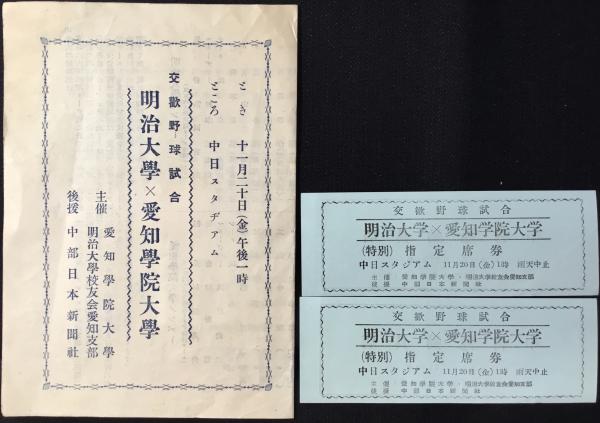 とき 十一月二十日(金)午後一時
ところ 中日スタヂアム
交歡野球試合
明治大學×愛知學院大學
主催 愛知學院大學
明治大學校友会愛知支部
後援 中部日本新聞社
交歓野球試合
明治大学×愛知学院大学
(特別) 指定席券
中日スタジアム 11月20日(金)1時 雨天中止
主催 愛知学院大学・明治大学校友会愛知支部
後援 中部日本新聞社
交歓野球試合
明治大学×愛知学院大学
(特別) 指定席券
中日スタジアム 11月20日(金)1時 雨天中止
主催 愛知学院大学・明治大学校友会愛知支部
後援 中部日本新聞社